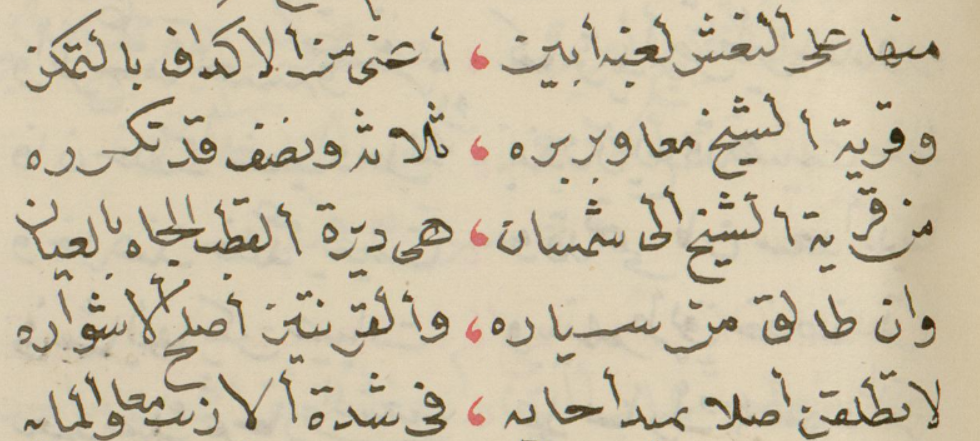 منها على النعش لعبد أبين ، أعنى من الاكداف بالتمكن
وقرية الشيخ معا وبربره ، ثلاثه ونصف قد تكرره
من قرية الشيخ الى شمسان ، هى ديرة القطب الجاه بالعيان
وان طالق من سياره ، والقرنتين أصلح لاشواره
لا تطلقن أصلا ، فى شدة الازيب معا والمايه